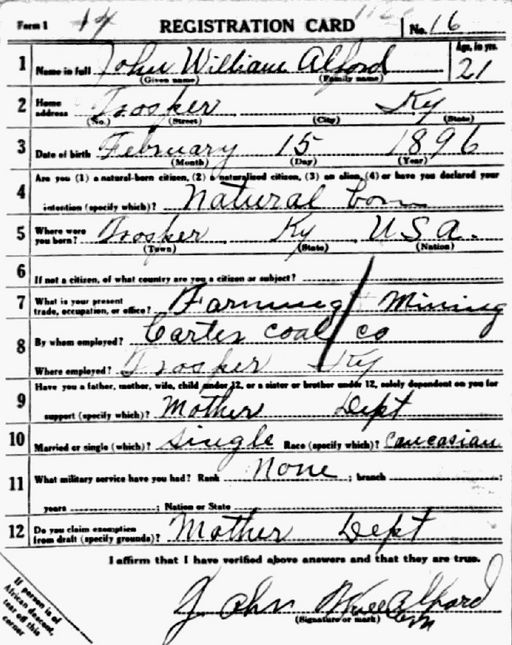 Form 1 REGISTRATION CARD No. 16
1 Name in full John William Alford Age, in yrs. 21
(Given name) (Family name)
2 Home address Trosper Ky
(No.) (Street) (City) (State)
3 Date of birth February 15 1896
(Month) (Day) (Year)
4 Are you (1) a natural-born citizen, (2) a naturalized citizen, (3) an alien, (4) or have you declared your
intention (specify which)? Natural born
5 Where were you born? Trosper Ky U.S.A.
(Town) (State) (Nation)
6 If not a citizen, of what country are you a citizen or subject?
7 What is your present trade, occupation, or office? Farming / Mining
8 By whom employed? Carter coal co
Where employed? Trosper Ky
9 Have you a father, mother, wife, child under 12, or a sister or brother under 12, solely dependent on you for
support (specify which)? Mother Dept
10 Married or single (which)? Single Race (specify which)? Caucasian
11 What military service have you had? Rank None ; branch
years ; Nation or State
12 Do you claim exemption from draft (specify grounds)? Mother Dept
I affirm that I have verified above answers and that they are true.
John Alford
(Signature or mark)
If person is of
African descent,
tear off this
corner